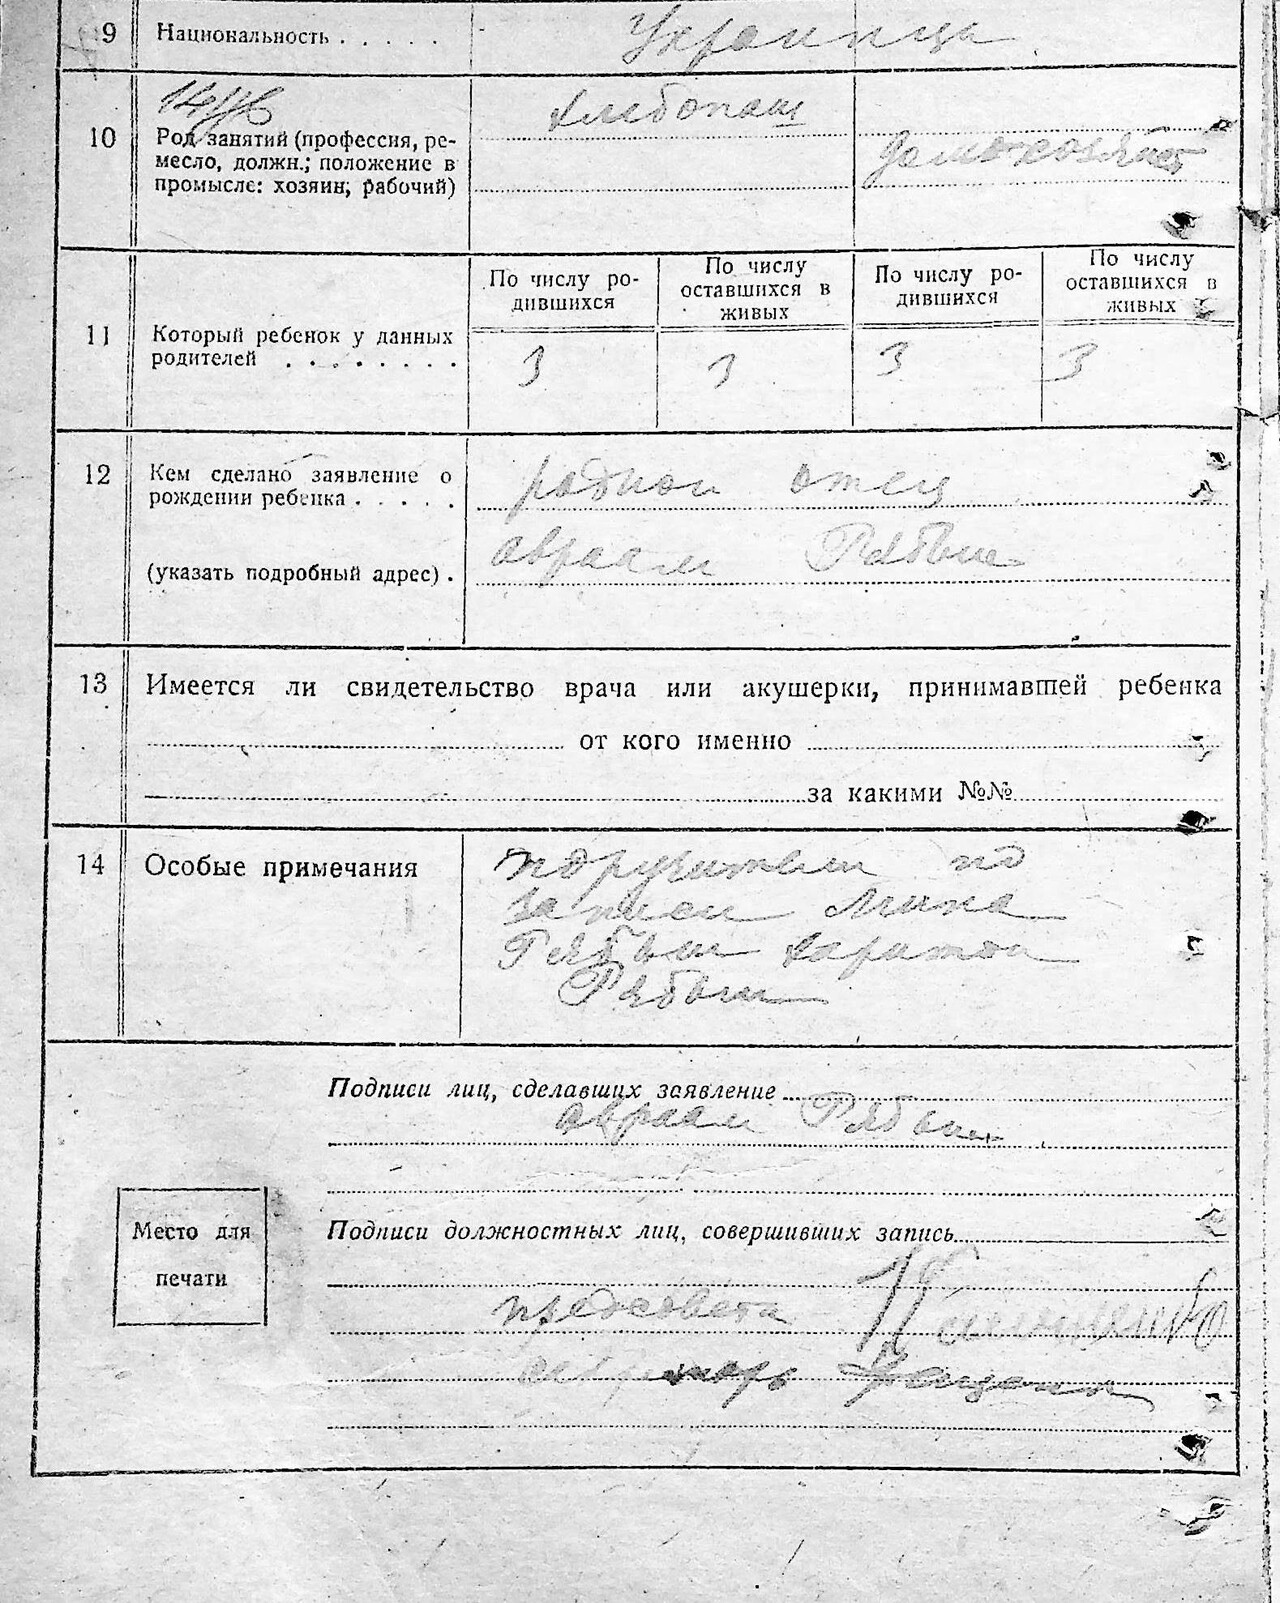 9 Национальность . . . . . Украинцы
10 Род занятий (профессия, ре-
месло, должн.; положение в
промысле: хозяин, рабочий)
хлебопаш
домохозяйст
11 Который ребенок у данных
родителей . . . . . . . .
По числу ро-
дившихся
По числу
оставшихся в
живых
По числу ро-
дившихся
По числу
оставшихся в
живых
3 3 3 3
12 Кем сделано заявление о
рождении ребенка . . . . .
(указать подробный адрес) .
родной отец
авраам Рябыш
13 Имеется ли свидетельство врача или акушерки, принимавшей ребенка
от кого именно
за какими №№
14 Особые примечания
по
записи
Рябыш Харитон
Рябыш
Подписи лиц, сделавших заявление
авраам Рябыш
Место для
печати
Подписи должностных лиц, совершивших запись
предсовета
секретарь